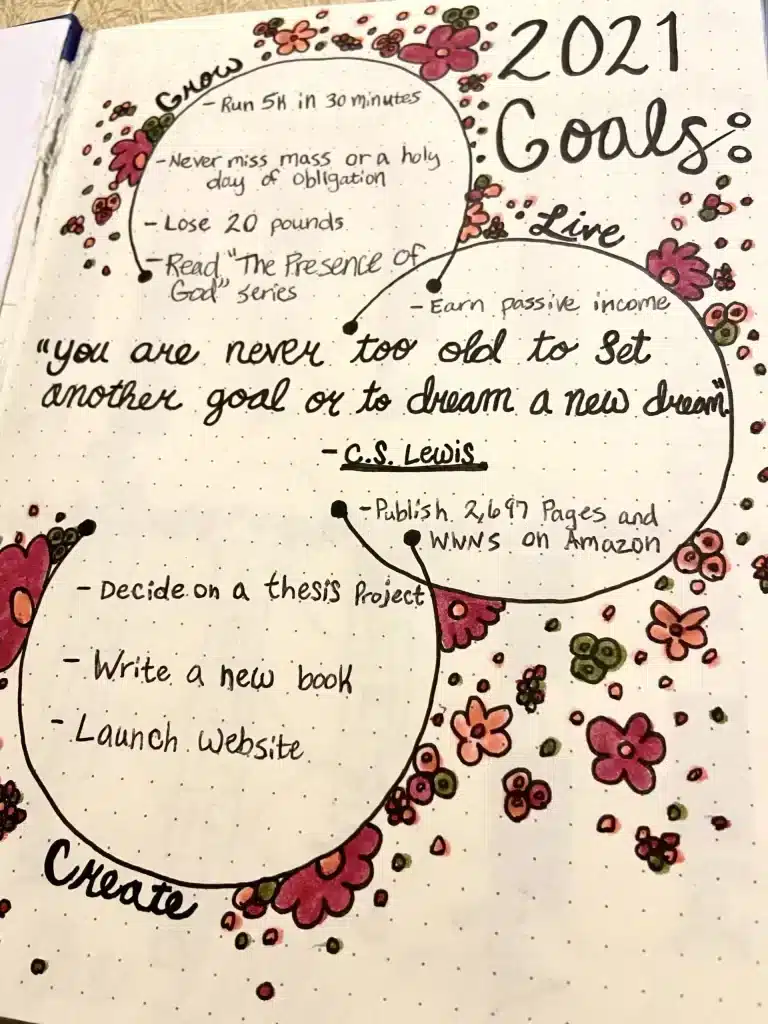 2021
Goals:
Grow
- Run 5K in 30 minutes
- Never miss mass or a holy
day of obligation
- Lose 20 pounds
- Read "The Presence of
God" series
Live
- Earn passive income
"you are never too old to set
another goal or to dream a new dream"
- C.S. Lewis
- Publish 2,697 Pages and
WWNS on Amazon
- Decide on a thesis Project
- Write a new book
- Launch website
Create